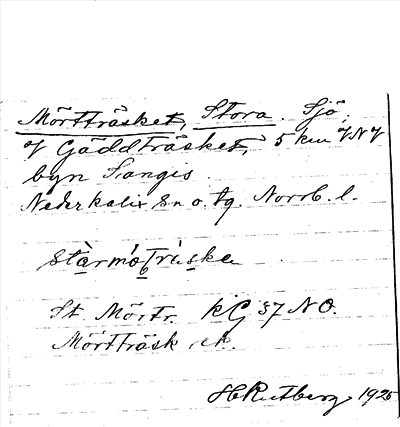 Mörtträsket, Stora. Sjö,
V Gäddträsket, 5 km VNV
byn Sangis.
Nederkalix Sn o. tg. Norrb. l.
St. Mörtr. KG 37 NO.
Mörtträsk, ek.
H Rutberg 1925